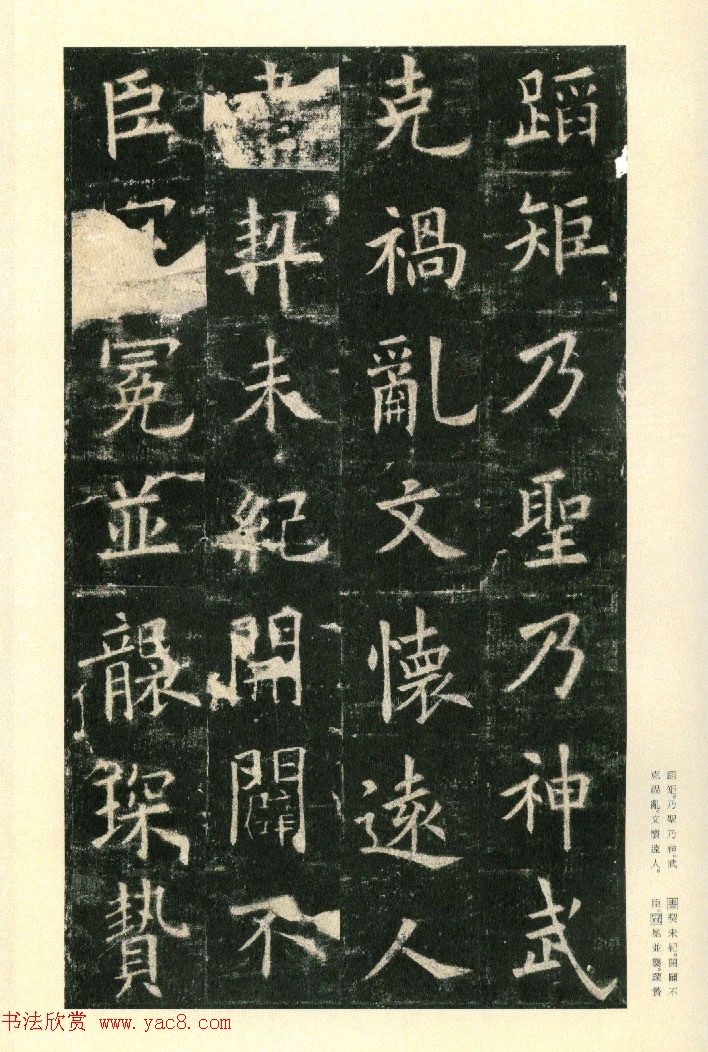 蹈矩乃聖乃神武
克禍亂文懷遠人
書契未紀開闢不
臣冠冕並襲琛贄
蹈矩。乃聖乃神。武
克禍亂。文懷遠人。
書契未紀。開闢不
臣。冠冕並襲。琛贄
书法欣赏 www.yac8.com